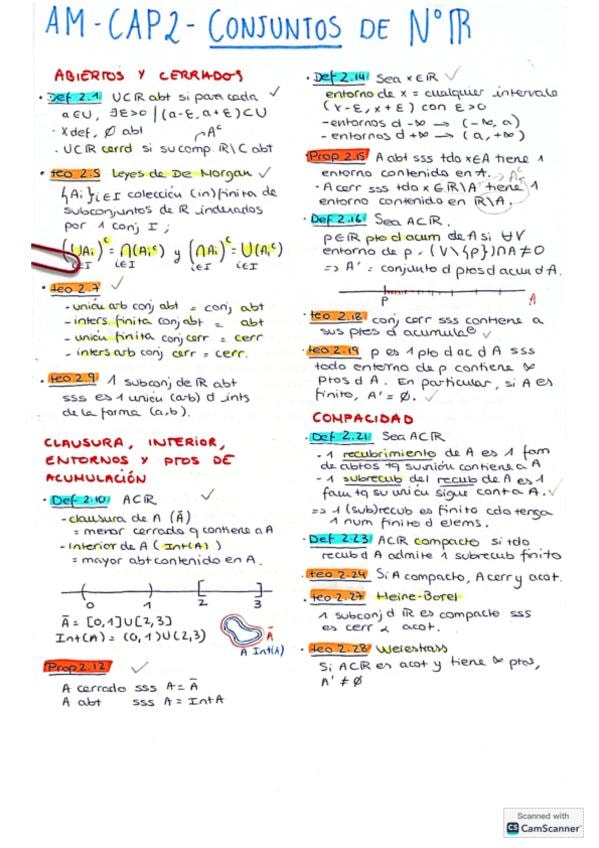 AM-CAP2-CONJUNTOS DE NºIR
ABIERTOS Y CERRADOS
· Def 2.1 UCIR abt si para cada
a∈U, ∃ε>0 | (a-ε, a+ε)CU
· X def, ∅ abt
· UCIR cerrd si su comp. IR\C abt
A^c
· teo 2.5 Leyes de De Morgan
{Ai}i∈I colección (in)finita de
subconjuntos de IR indexados
por 1 conj I;
(UAi)^c = ∩(Ai^c) y (∩Ai)^c = U(Ai^c)
i∈I i∈I i∈I i∈I
· teo 2.7
- unión arb conj abt = conj abt
- inters. finita conj abt = abt
- unión finita conj cerr = cerr
- inters arb conj cerr = cerr.
· teo 2.9 1 subconj de IR abt
sss es 1 unión (arb) d ints
de la forma (a,b).
CLAUSURA, INTERIOR,
ENTORNOS Y PTOS DE
ACUMULACIÓN
· Def 2.10 ACIR
- clausura de A (Ā)
= menor cerrado q contiene a A
- interior de A (Int(A))
= mayor abt contenido en A.
0 1 2 3
Ā = [0,1]U[2,3]
Int(A) = (0,1)U(2,3)
Ā
A Int(A)
Prop 2.12
A cerrado sss A = Ā
A abt sss A = Int A
· Def 2.14 Sea x∈IR
entorno de x = cualquier intervalo
(x-ε, x+ε) con ε>0
- entornos d -∞ → (-∞, a)
- entornos d +∞ → (a, +∞)
Prop 2.15 A abt sss tdo x∈A tiene 1
entorno contenido en A.
- A cerr sss tdo x∈IR\A tiene 1
entorno contenido en IR\A.
A^c
· Def 2.16 Sea ACIR.
p∈IR pto d acum de A si ∀V
entorno de p, (V\{p})∩A≠0
=> A' = conjunto d ptos d acum d A.
P A
· teo 2.18 conj cerr sss contiene a
sus ptos d acumulac
· teo 2.19 p es 1 pto d ac d A sss
todo entorno de p contiene ∞
ptos d A. En particular, si A es
finito, A' = ∅.
COMPACIDAD
· Def 2.21 Sea ACIR
- 1 recubrimiento de A es 1 fam
de abtos tq su unión contiene a A
- 1 subrecub del recub de A es 1
fam tq su unión sigue cont a A.
=> 1 (sub)recub es finito cdo tenga
1 num finito d elems.
· Def 2.23 ACIR compacto si tdo
recub d A admite 1 subrecub finito
· teo 2.24 Si A compacto, A cerr y acot.
· teo 2.27 Heine-Borel
1 subconj d IR es compacto sss
es cerr & acot.
· teo 2.28 Weiestrass
Si ACIR es acot y tiene ∞ ptos,
A' ≠ ∅
Scanned with
CS CamScanner